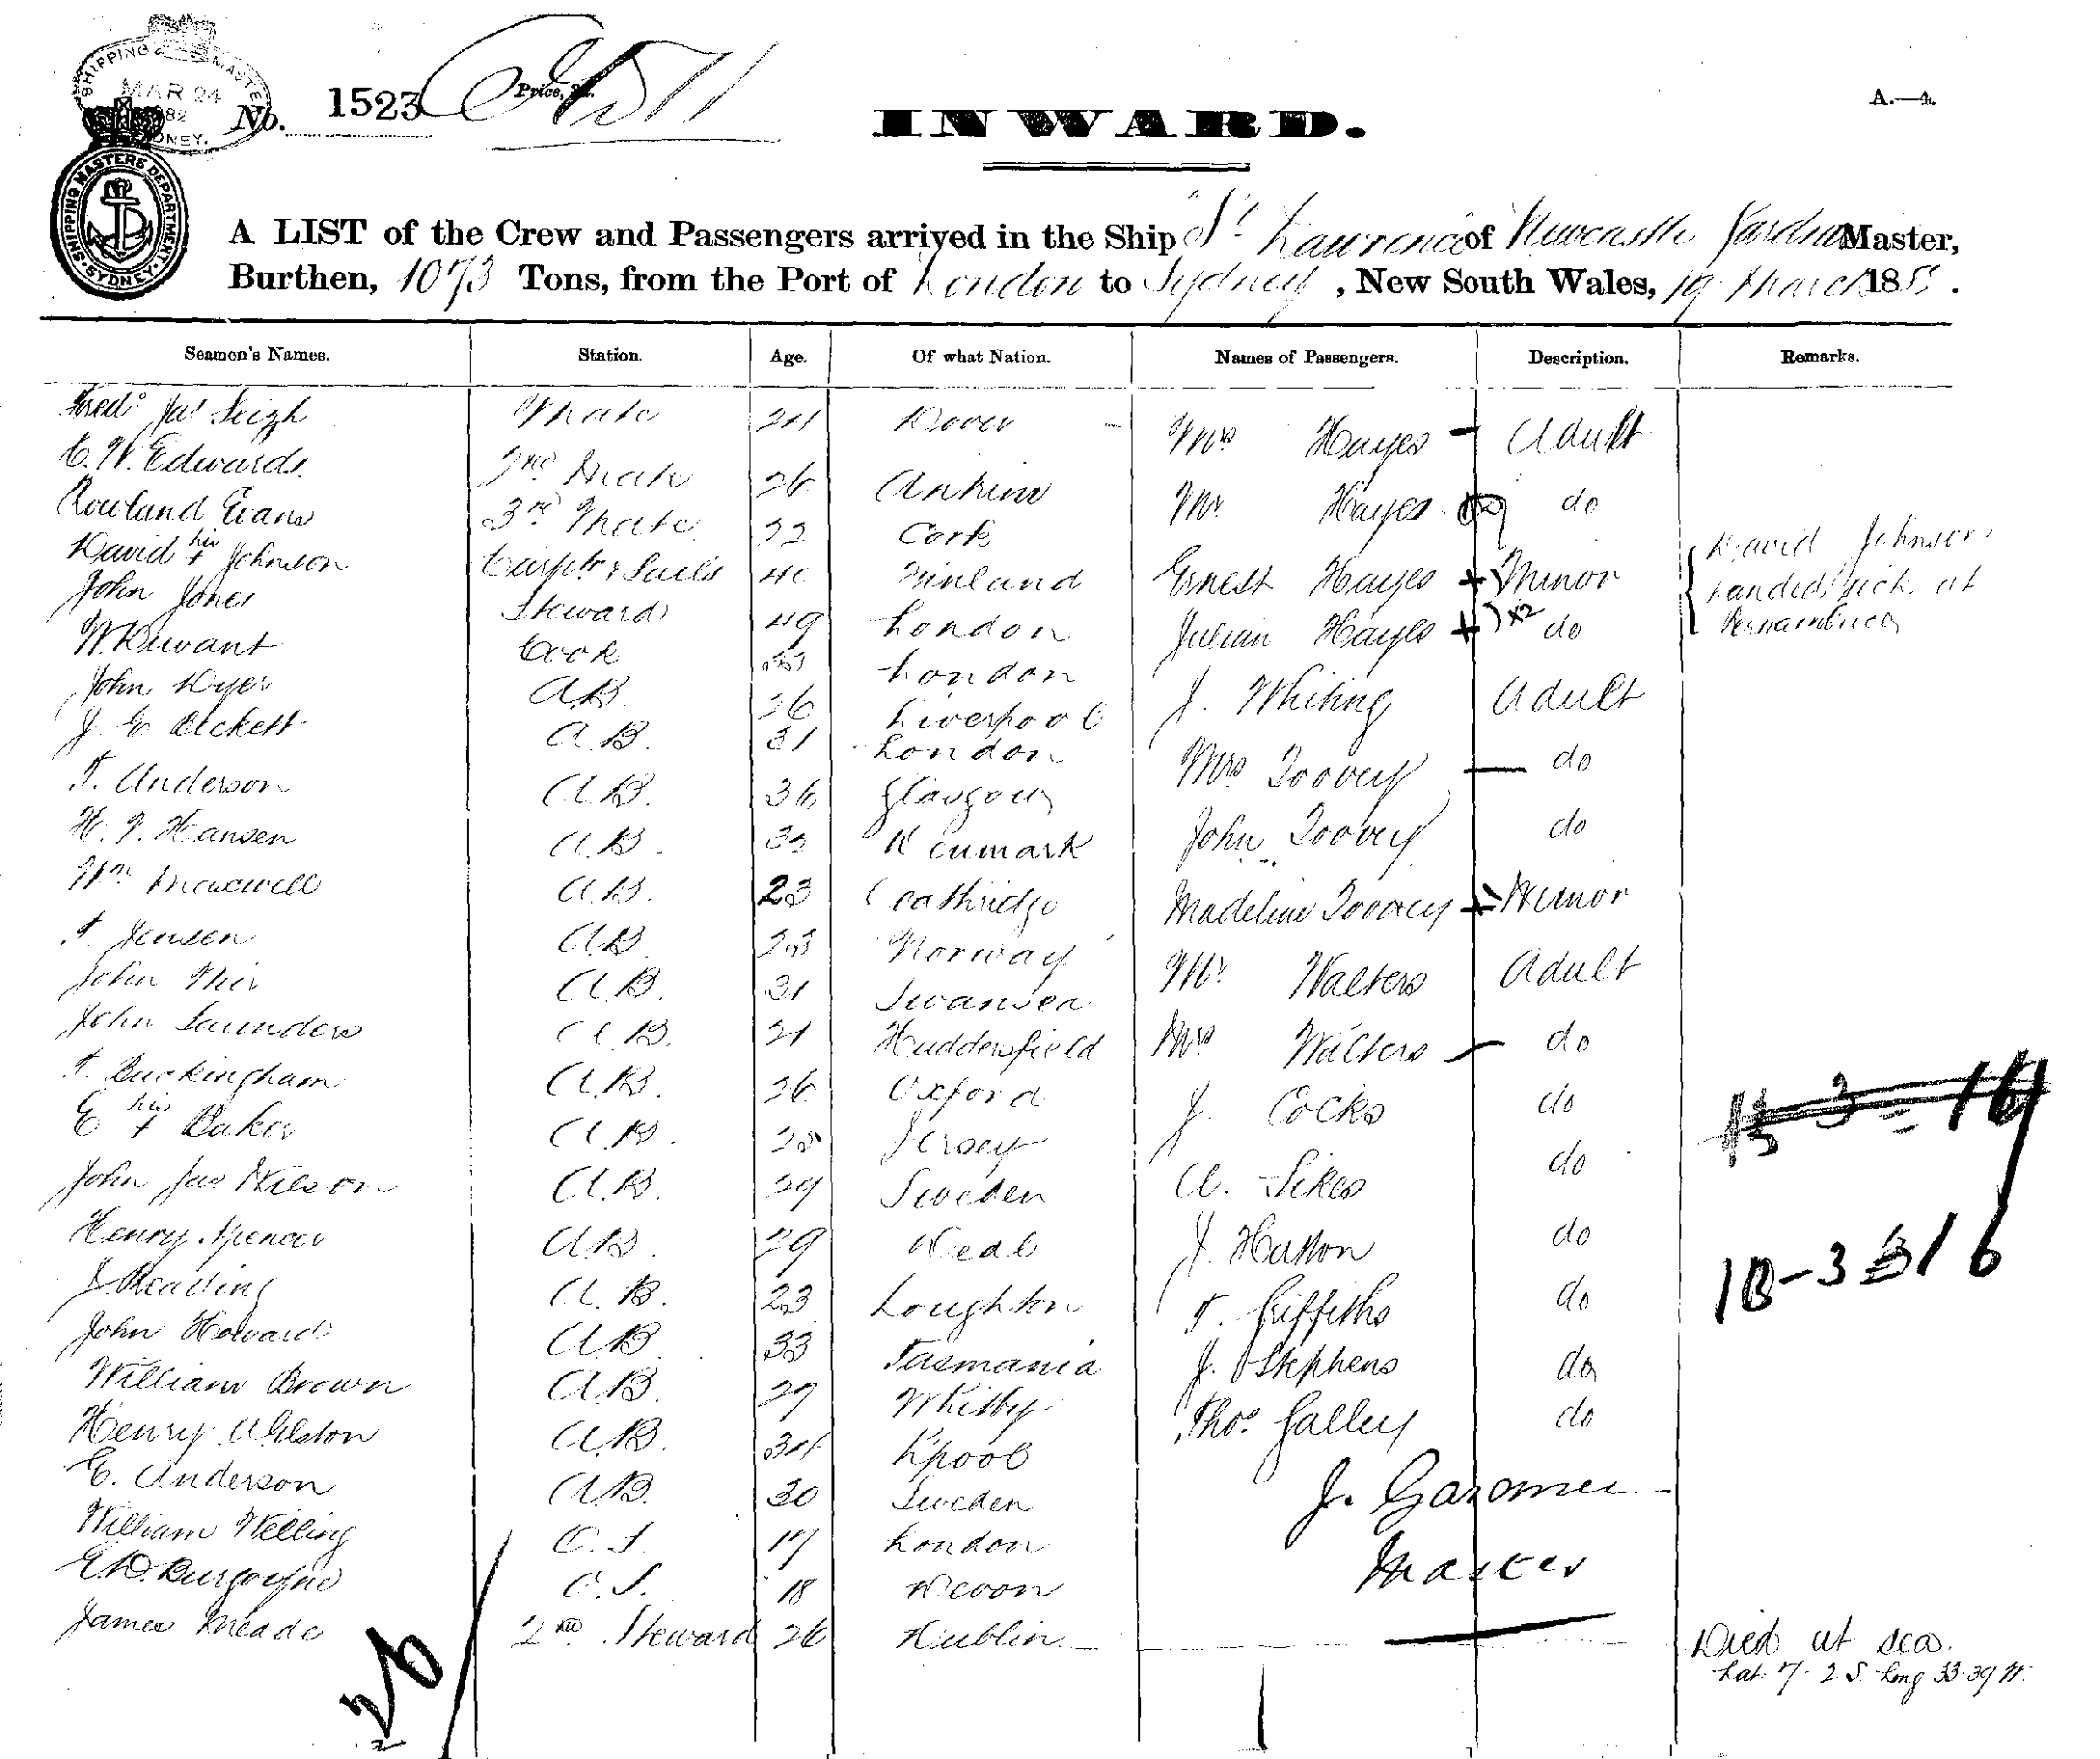 SHIPPING MASTER
MAR 24
SYDNEY.
No. 1523
A.—4.
INWARD.
SHIPPING MASTERS DEPARTMENT. SYDNEY
A LIST of the Crew and Passengers arrived in the Ship St Lawrence of Newcastle Gardner Master,
Burthen, 1073 Tons, from the Port of London to Sydney, New South Wales, 19 March 188 .
Seamen's Names. Station. Age. Of what Nation. Names of Passengers. Description. Remarks.
Fredk Jas Leigh Mate 24 Dover Mrs Hayes Adult
C. W. Edwards 2nd Mate 26 Antrim Mr Hayes do
Rowland Evans 3rd Mate 22 Cork Ernest Hayes Minor David Johnson
David his + Johnson Carptr & Sails 40 Finland Julian Hayes x2 do landed sick at
John Jones Steward 49 London J. Whiting Adult Pernambuco
W. Durant Cook London Mrs Toovey do
John Dyer A.B. 26 Liverpool John Toovey do
J. E. Beckett A.B. 31 London Madeline Toovey Minor
T. Anderson A.B. 36 Glasgow Mr Walters Adult
H. P. Hansen A.B. Denmark Mrs Walters do
Wm Maxwell A.B. 23 J. Cocks do
T. Jensen A.B. 23 Norway A. Sikes do
John A.B. 31 Swansea J. Hutton do
John Saunders A.B. 21 Huddersfield T. Griffiths do
T. Buckingham A.B. 26 Oxford J. Stephens do
E his + Baker A.B. Jersey Thos. Galley do
John Jas Wilson A.B. 29 Sweden J. Gardner
Henry Spencer A.B. 29 Deal Master
J. Reading A.B. 23 Loughton
John Howard A.B. 33 Tasmania
William Brown A.B. 27 Whitby
Henry Alston A.B. 34 L'pool
E. Anderson A.B. 30 Sweden
William Welling O.S. 17 London
E. D. Burgoyne O.S. 18 Devon
James Meade 2nd Steward 26 Dublin Died at sea.
Lat 7-2 S. Long 33.39 W.
26